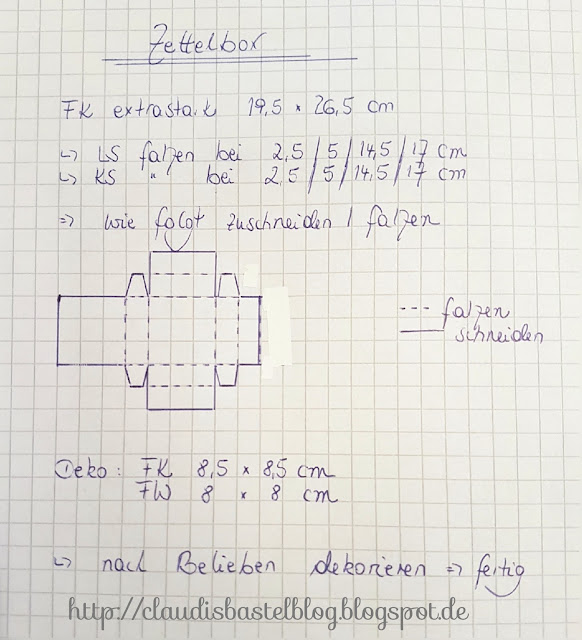 Zettelbox
FK extrastark 19,5 x 26,5 cm
↳ LS falzen bei 2,5 / 5 / 14,5 / 17 cm
↳ KS " bei 2,5 / 5 / 14,5 / 17 cm
=> wie folgt zuschneiden / falzen
--- falzen
— schneiden
Deko: FK 8,5 x 8,5 cm
FW 8 x 8 cm
↳ nach Belieben dekorieren => fertig
http://claudisbastelblog.blogspot.de